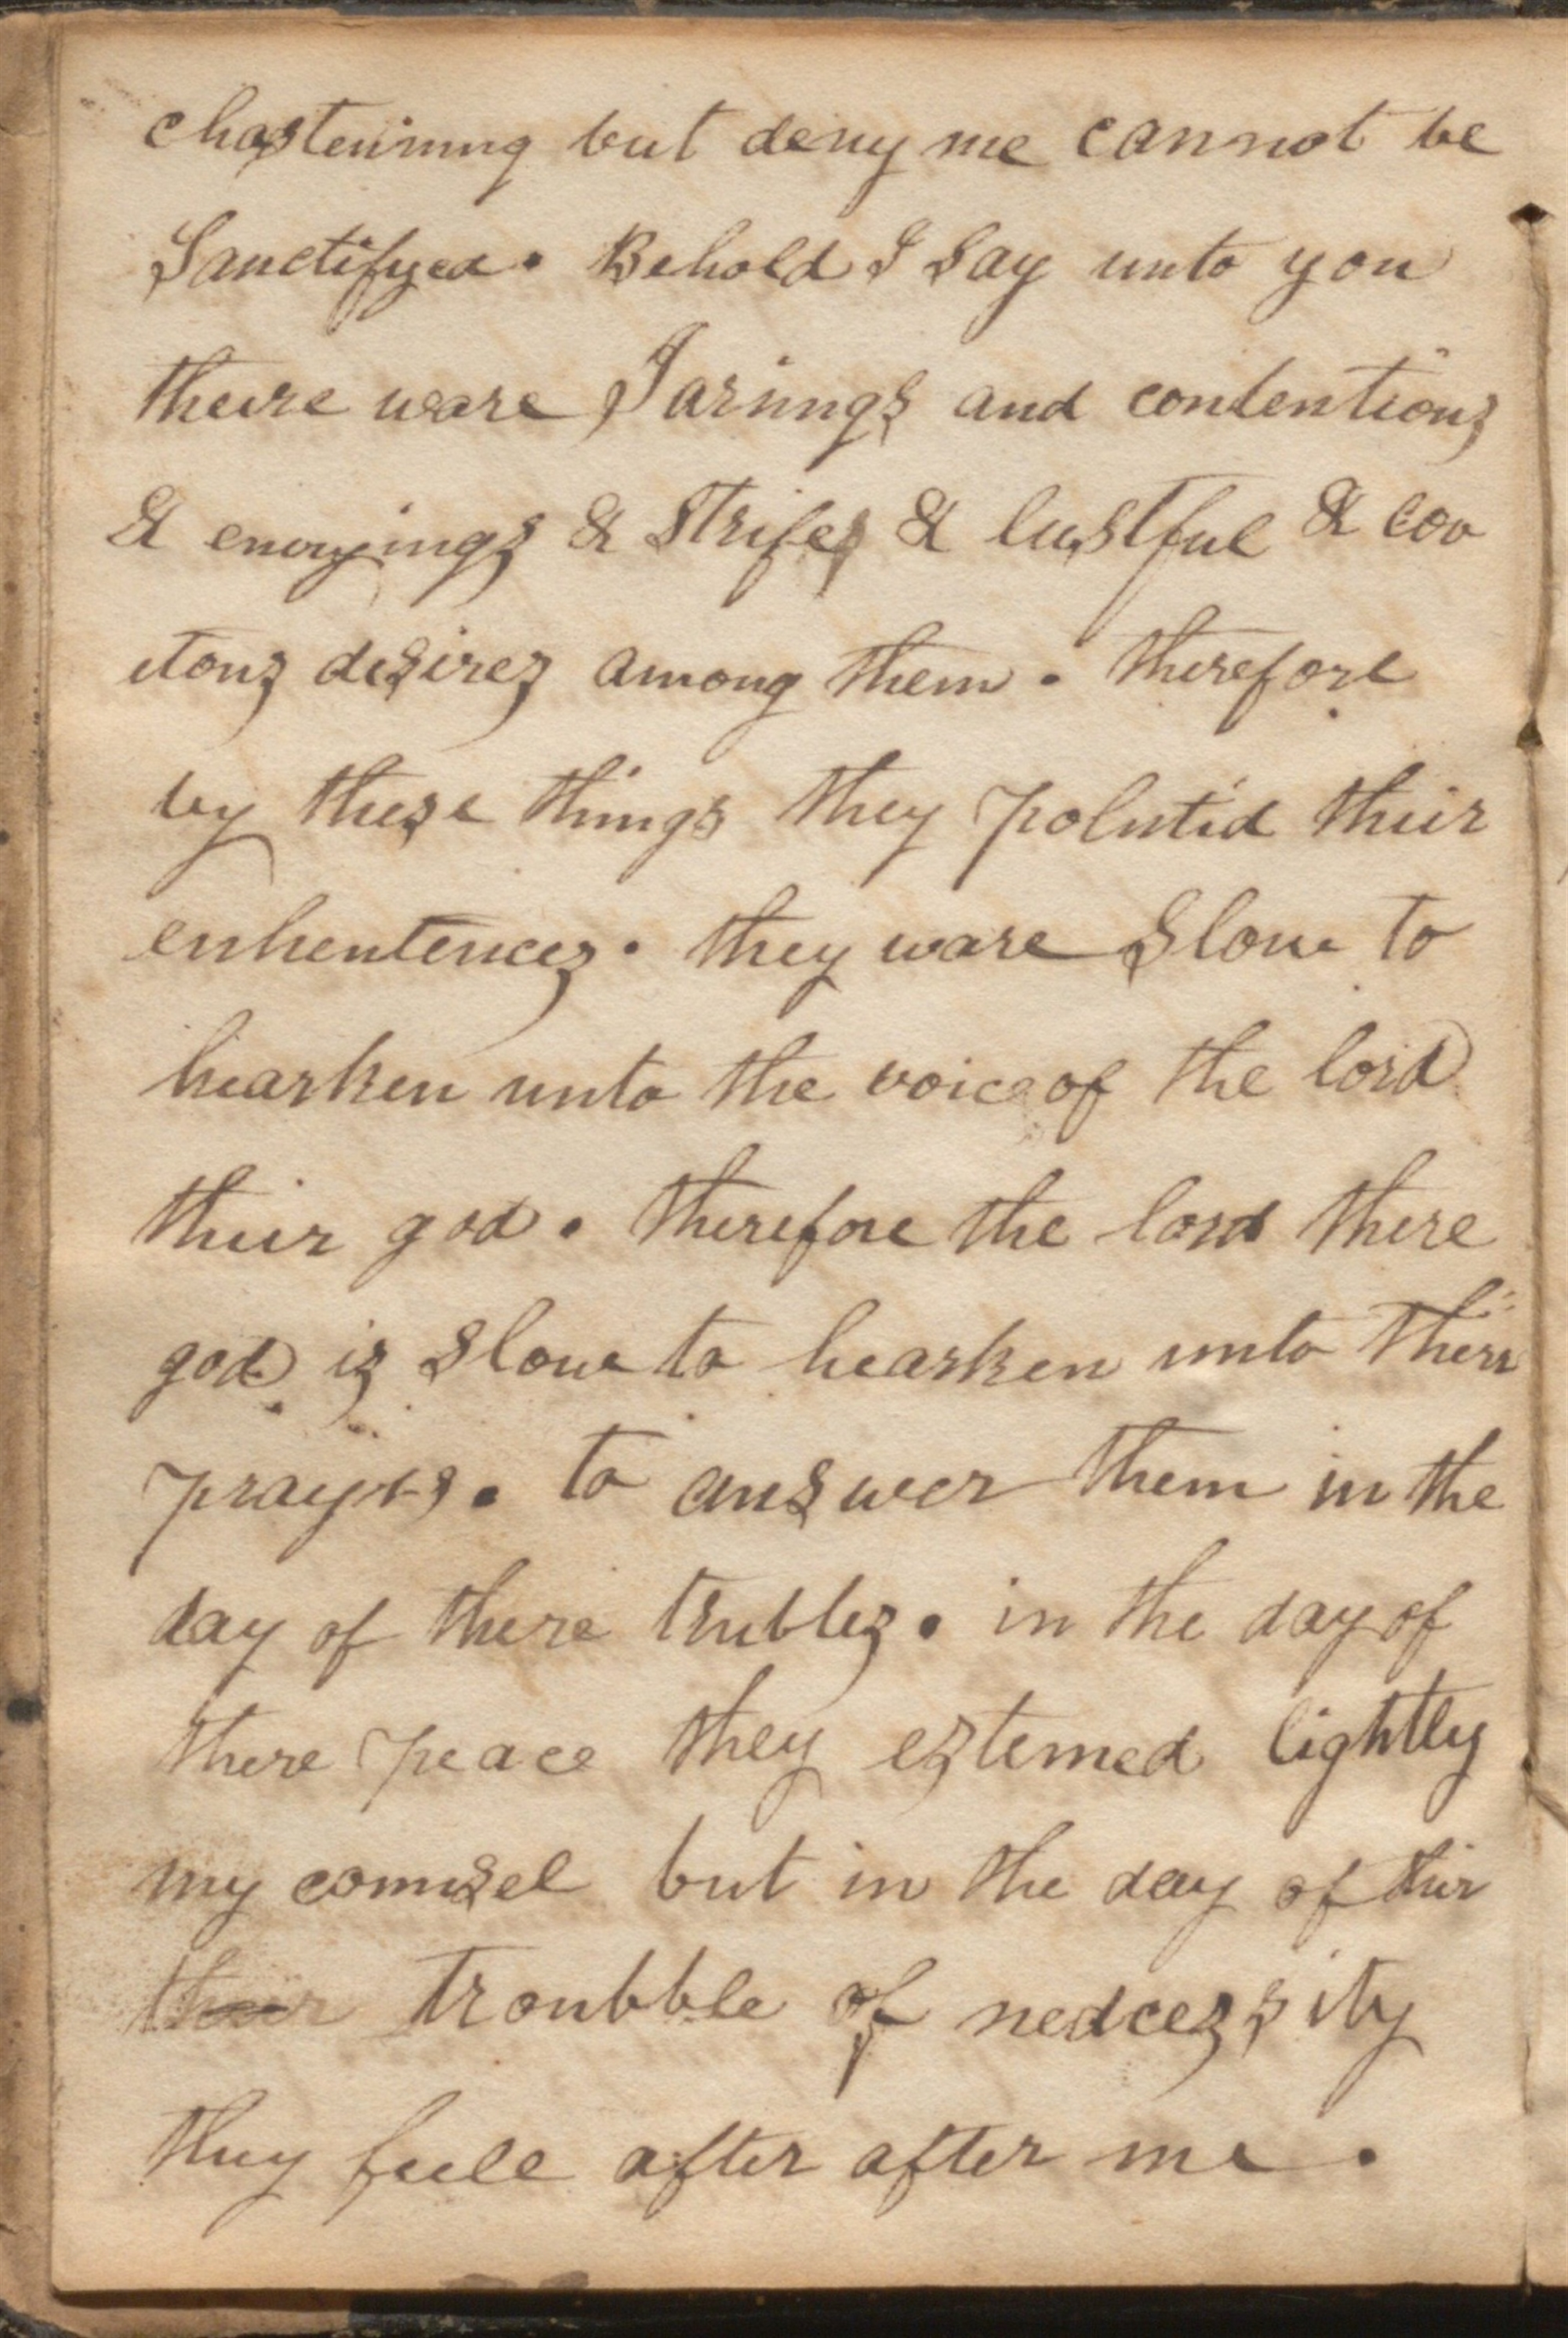 chastenining but deny me cannot be
Sanctifyed. Behold I Say unto you
theire ware Jarings and contentions
& envyings & Strifes & lustful & cov
etous desires among them. therefore
by these things they polutid their
enhentences. they ware Slow to
hearken unto the voice of the lord
their god. therefore the lord there
god is Slow to hearken unto their
prayrs. to answer them in the
day of there trubles. in the day of
there peace they estemed lightly
my counsel but in the day of thir
their troubble of nedcessity
they feele after after me.